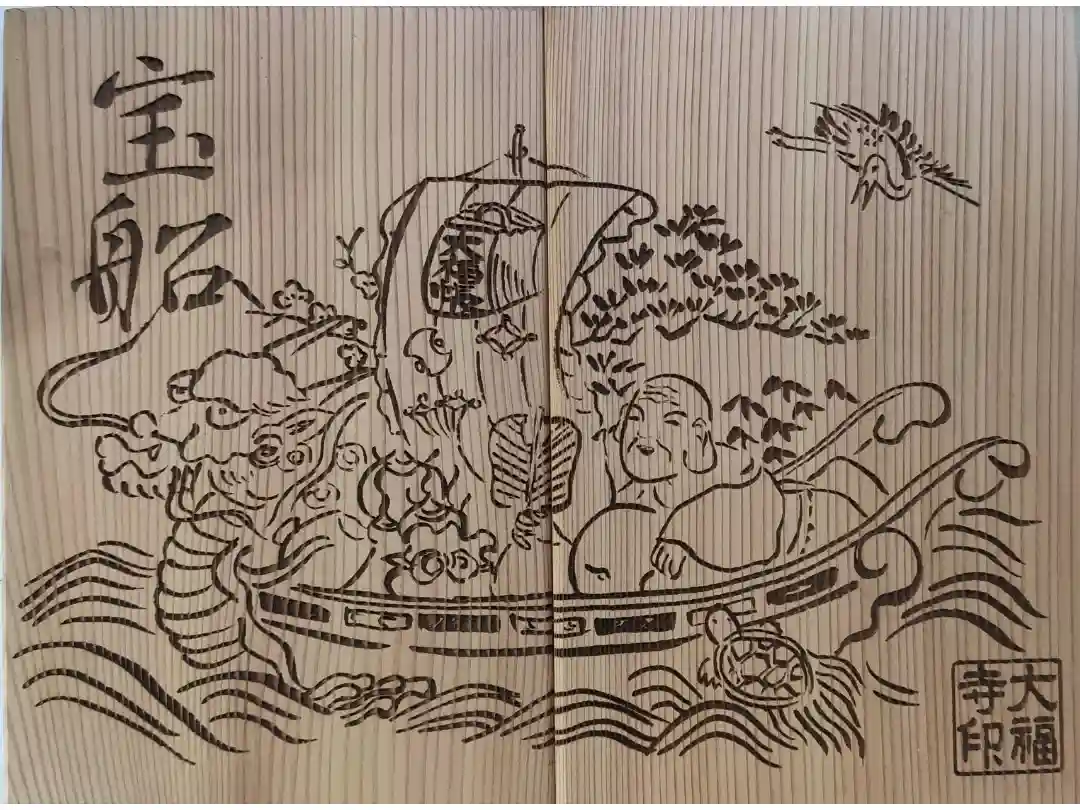 宝船
大福
大福
寺印